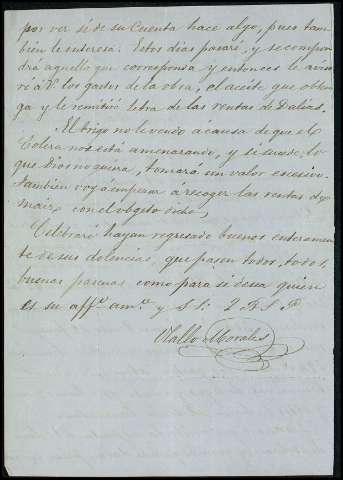 por ver si de su Cuenta hace algo, pues tam-
bien le interesa. Estos dias pasaré, y se compon-
drá aquello que corresponda y entonces le avisa-
ré á V. los gastos de la obra, el aceite que obten-
ga y le remitiré letra de las rentas de Dalias.
El trigo no le vendo á causa de que el
Colera nos está amenazando, y si sucede, lo
que Dios no quiera, tomará un valor escesivo.
tambien voy á empezar á recoger las rentas de
maiz con el obgeto dicho,
Celebraré hayan regresado buenos enteramen-
te de sus dolencias, que pasen todos, todos,
buenas pascuas como para si desea quien
es su aff.º am.º y S. S. Q B S M
Morales